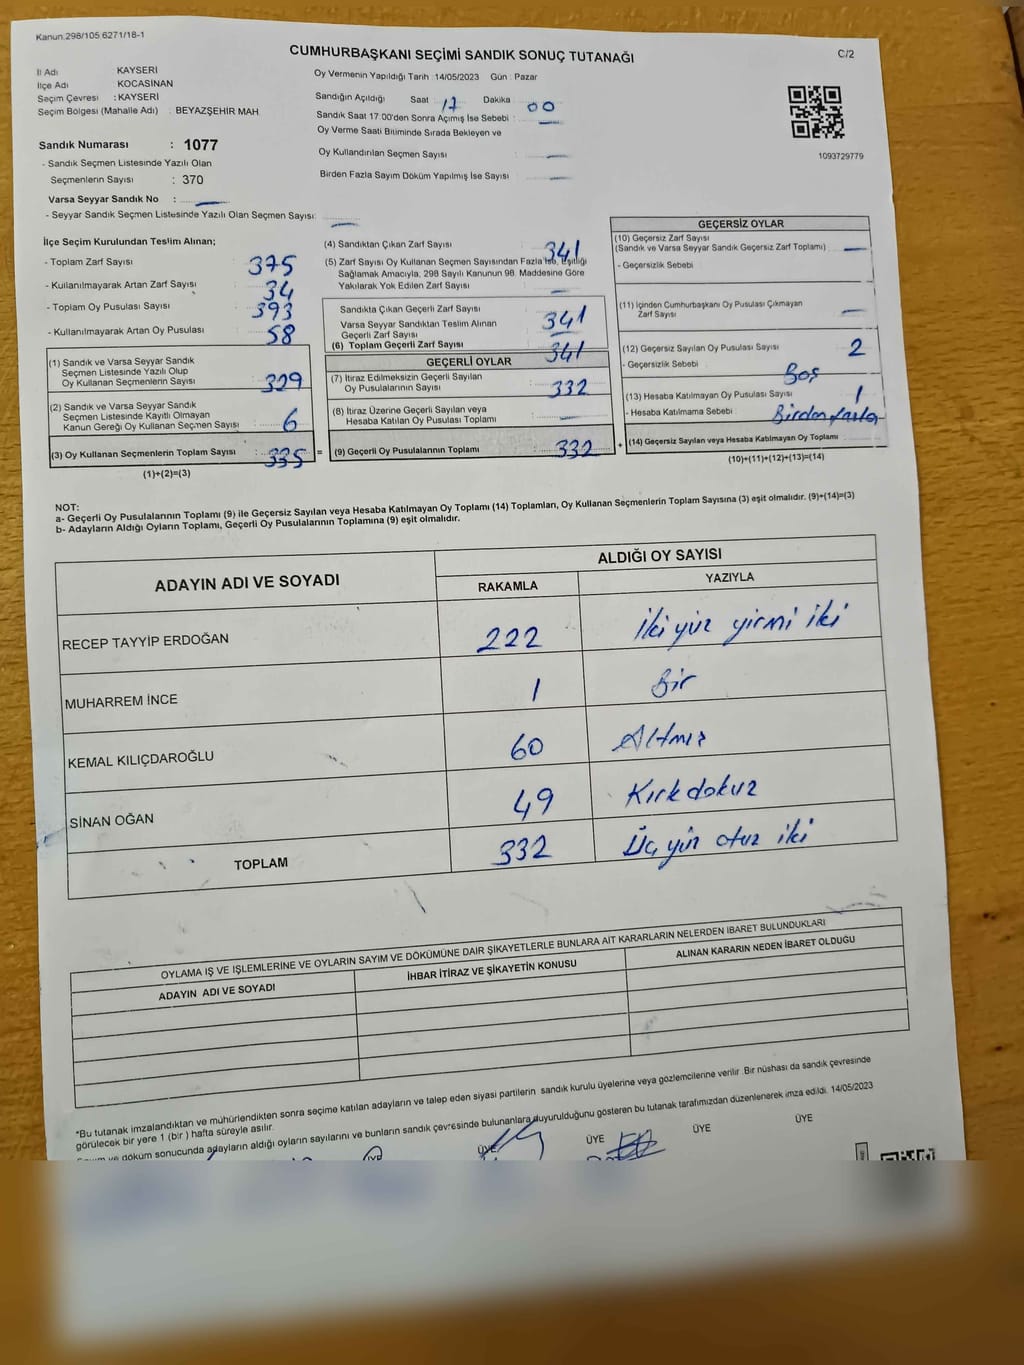 Kanun:298/105 6271/18-1
CUMHURBAŞKANI SEÇİMİ SANDIK SONUÇ TUTANAĞI
C/2
İl Adı KAYSERİ
İlçe Adı KOCASİNAN
Seçim Çevresi : KAYSERİ
Seçim Bölgesi (Mahalle Adı) : BEYAZŞEHİR MAH
Oy Vermenin Yapıldığı Tarih :14/05/2023 Gün : Pazar
Sandığın Açıldığı Saat 17 Dakika 00
Sandık Saat 17:00'den Sonra Açımış İse Sebebi :
Oy Verme Saati Bitiminde Sırada Bekleyen ve
Oy Kullandırılan Seçmen Sayısı
Birden Fazla Sayım Döküm Yapılmış İse Sayısı
1093729779
Sandık Numarası : 1077
- Sandık Seçmen Listesinde Yazılı Olan
Seçmenlerin Sayısı : 370
Varsa Seyyar Sandık No :
- Seyyar Sandık Seçmen Listesinde Yazılı Olan Seçmen Sayısı:
İlçe Seçim Kurulundan Teslim Alınan;
- Toplam Zarf Sayısı : 375
- Kullanılmayarak Artan Zarf Sayısı : 34
- Toplam Oy Pusulası Sayısı : 393
- Kullanılmayarak Artan Oy Pusulası : 58
(1) Sandık ve Varsa Seyyar Sandık
Seçmen Listesinde Yazılı Olup
Oy Kullanan Seçmenlerin Sayısı : 329
(2) Sandık ve Varsa Seyyar Sandık
Seçmen Listesinde Kayıtlı Olmayan
Kanun Gereği Oy Kullanan Seçmen Sayısı : 6
(3) Oy Kullanan Seçmenlerin Toplam Sayısı : 335
(1)+(2)=(3)
(4) Sandıktan Çıkan Zarf Sayısı : 341
(5) Zarf Sayısı Oy Kullanan Seçmen Sayısından Fazla İse, Eşitliği
Sağlamak Amacıyla, 298 Sayılı Kanunun 98. Maddesine Göre
Yakılarak Yok Edilen Zarf Sayısı :
Sandıkta Çıkan Geçerli Zarf Sayısı : 341
Varsa Seyyar Sandıktan Teslim Alınan
Geçerli Zarf Sayısı
(6) Toplam Geçerli Zarf Sayısı : 341
GEÇERLİ OYLAR
(7) İtiraz Edilmeksizin Geçerli Sayılan
Oy Pusulalarının Sayısı : 332
(8) İtiraz Üzerine Geçerli Sayılan veya
Hesaba Katılan Oy Pusulası Toplamı :
= (9) Geçerli Oy Pusulalarının Toplamı : 332 +
GEÇERSİZ OYLAR
(10) Geçersiz Zarf Sayısı
(Sandık ve Varsa Seyyar Sandık Geçersiz Zarf Toplamı)
- Geçersizlik Sebebi
(11) İçinden Cumhurbaşkanı Oy Pusulası Çıkmayan
Zarf Sayısı
(12) Geçersiz Sayılan Oy Pusulası Sayısı : 2
- Geçersizlik Sebebi Boş
(13) Hesaba Katılmayan Oy Pusulası Sayısı : 1
- Hesaba Katılmama Sebebi Birden fazla
(14) Geçersiz Sayılan veya Hesaba Katılmayan Oy Toplamı
(10)+(11)+(12)+(13)=(14)
NOT:
a- Geçerli Oy Pusulalarının Toplamı (9) ile Geçersiz Sayılan veya Hesaba Katılmayan Oy Toplamı (14) Toplamları, Oy Kullanan Seçmenlerin Toplam Sayısına (3) eşit olmalıdır. (9)+(14)=(3)
b- Adayların Aldığı Oyların Toplamı, Geçerli Oy Pusulalarının Toplamına (9) eşit olmalıdır.
ADAYIN ADI VE SOYADI ALDIĞI OY SAYISI
RAKAMLA YAZIYLA
RECEP TAYYİP ERDOĞAN 222 İki yüz yirmi iki
MUHARREM İNCE 1 Bir
KEMAL KILIÇDAROĞLU 60 Altmış
SİNAN OĞAN 49 Kırkdokuz
TOPLAM 332 Üç yüz otuz iki
OYLAMA İŞ VE İŞLEMLERİNE VE OYLARIN SAYIM VE DÖKÜMÜNE DAİR ŞİKAYETLERLE BUNLARA AİT KARARLARIN NELERDEN İBARET BULUNDUKLARI
ADAYIN ADI VE SOYADI İHBAR İTİRAZ VE ŞİKAYETİN KONUSU ALINAN KARARIN NEDEN İBARET OLDUĞU
*Bu tutanak imzalandıktan ve mühürlendikten sonra seçime katılan adayların ve talep eden siyasi partilerin sandık kurulu üyelerine veya gözlemcilerine verilir. Bir nüshası da sandık çevresinde
görülecek bir yere 1 (bir) hafta süreyle asılır.
ve döküm sonucunda adayların aldığı oyların sayılarını ve bunların sandık çevresinde bulunanlara duyurulduğunu gösteren bu tutanak tarafımızdan düzenlenerek imza edildi. 14/05/2023
ÜYE ÜYE ÜYE ÜYE ÜYE